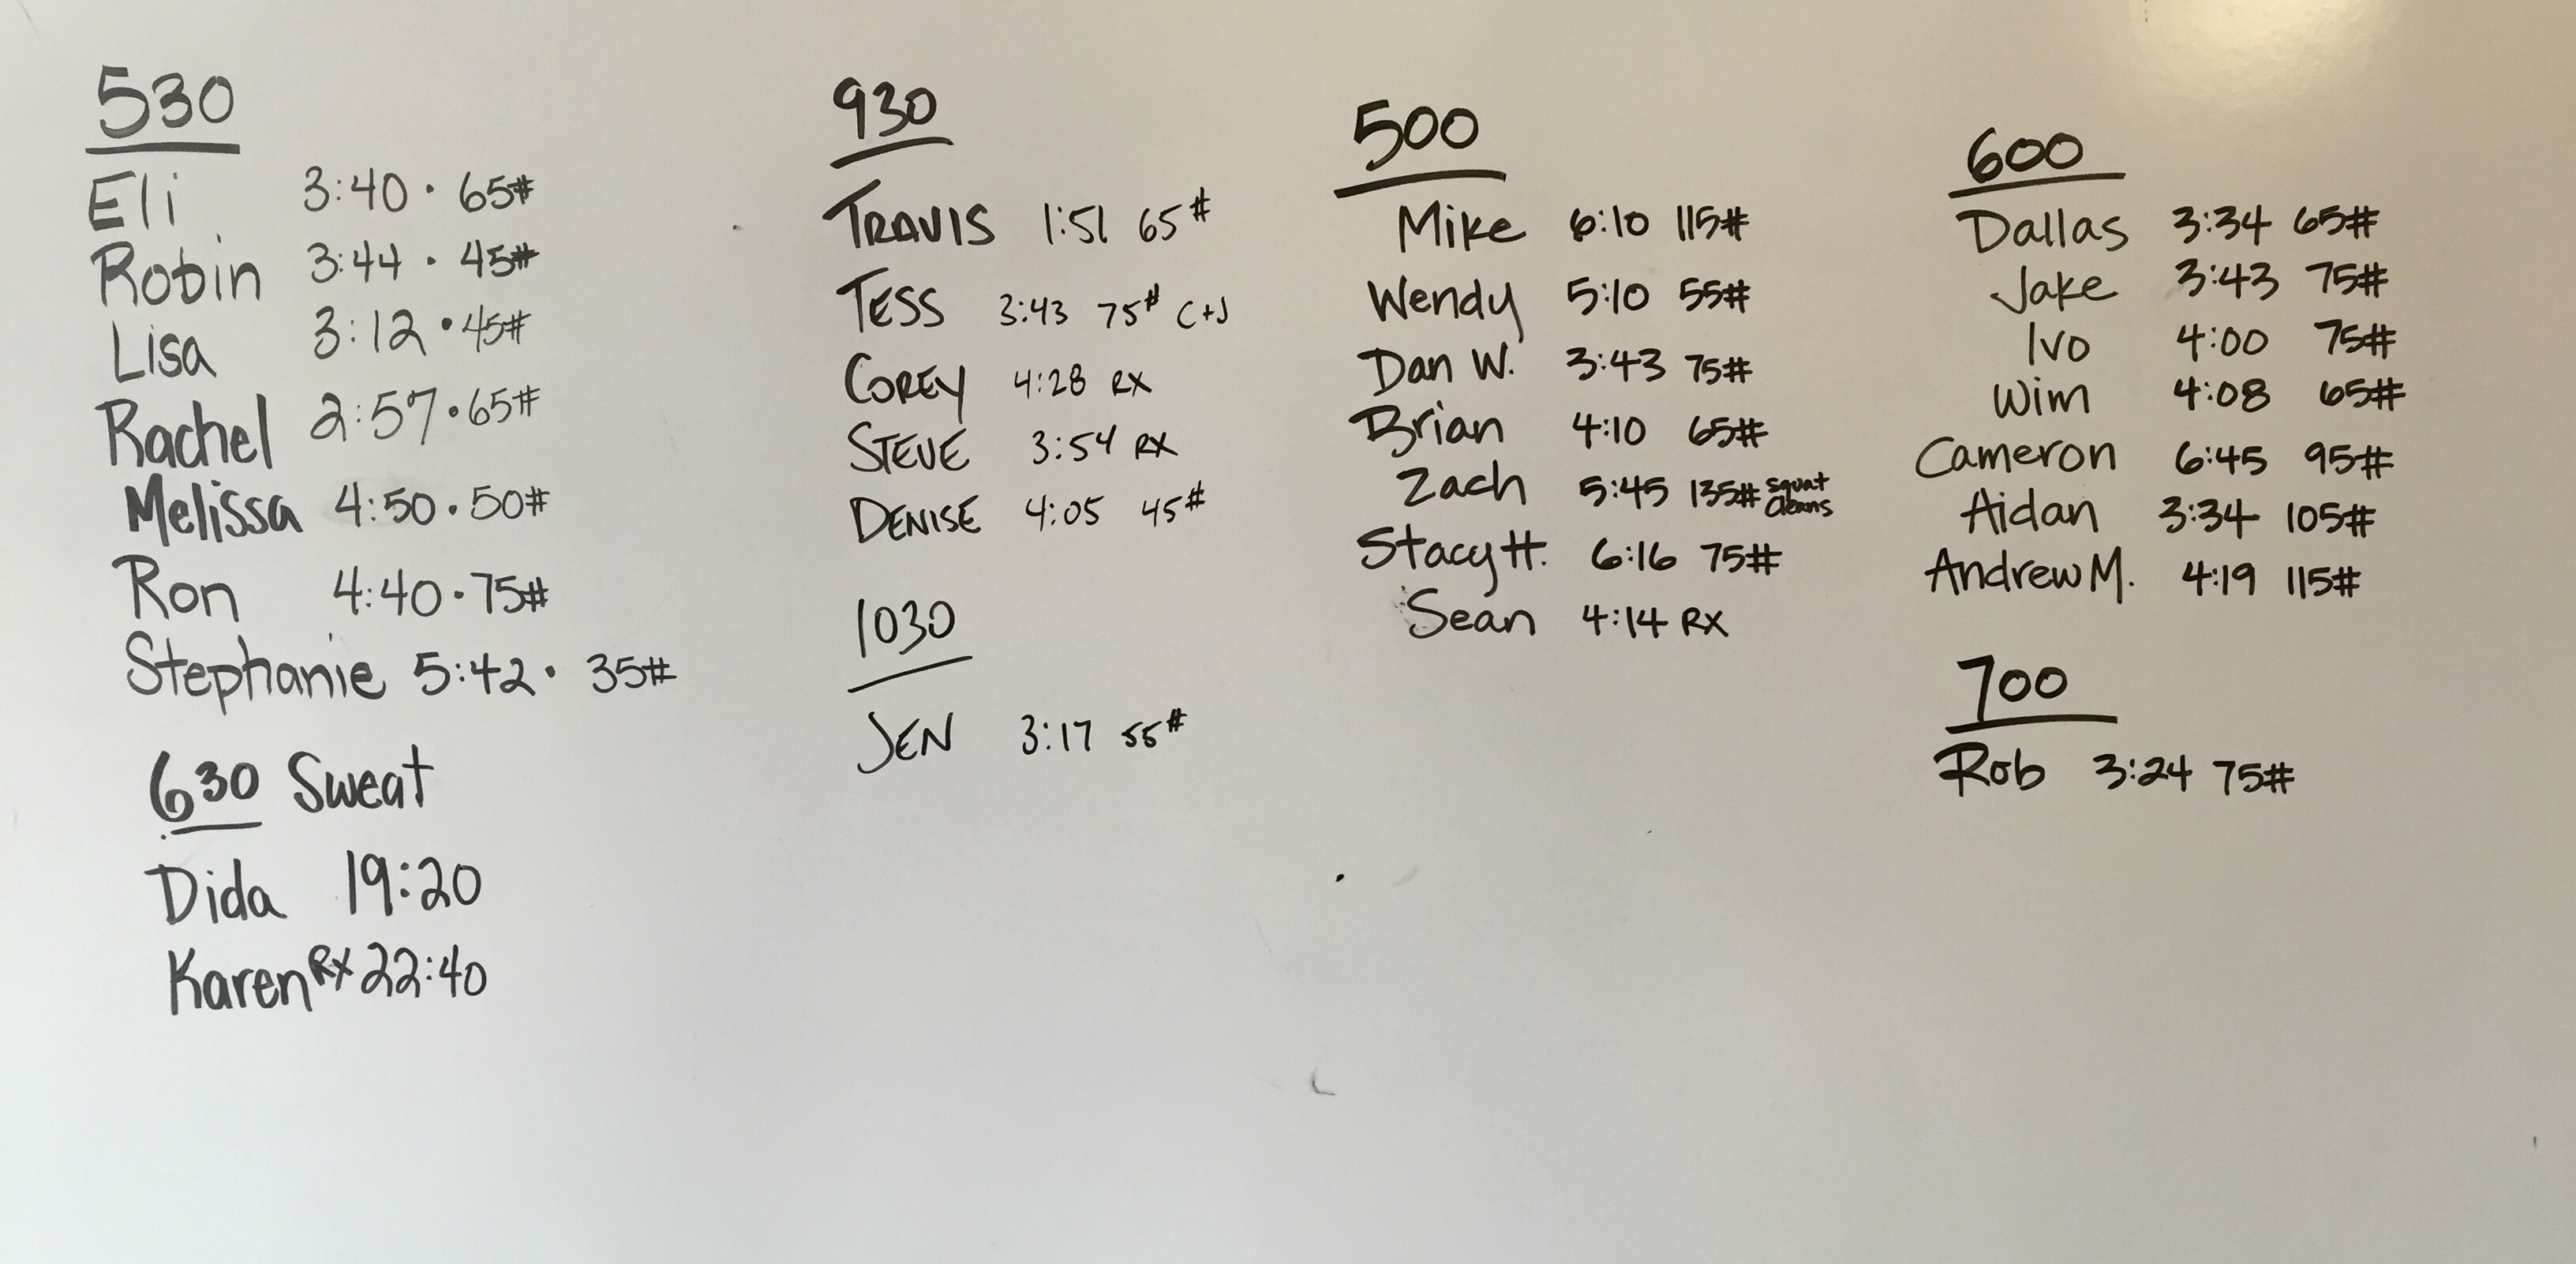 530
Eli 3:40 · 65#
Robin 3:44 · 45#
Lisa 3:12 · 45#
Rachel 2:57 · 65#
Melissa 4:50 · 50#
Ron 4:40 · 75#
Stephanie 5:42 · 35#
630 Sweat
Dida 19:20
Karen RX 22:40
930
TRAVIS 1:51 65#
TESS 3:43 75# C+J
COREY 4:28 RX
STEVE 3:54 RX
DENISE 4:05 45#
1030
JEN 3:17 55#
500
Mike 6:10 115#
Wendy 5:10 55#
Dan W. 3:43 75#
Brian 4:10 65#
Zach 5:45 135# squat
cleans
Stacy H. 6:16 75#
Sean 4:14 RX
600
Dallas 3:34 65#
Jake 3:43 75#
Ivo 4:00 75#
Wim 4:08 65#
Cameron 6:45 95#
Aidan 3:34 105#
Andrew M. 4:19 115#
700
Rob 3:24 75#